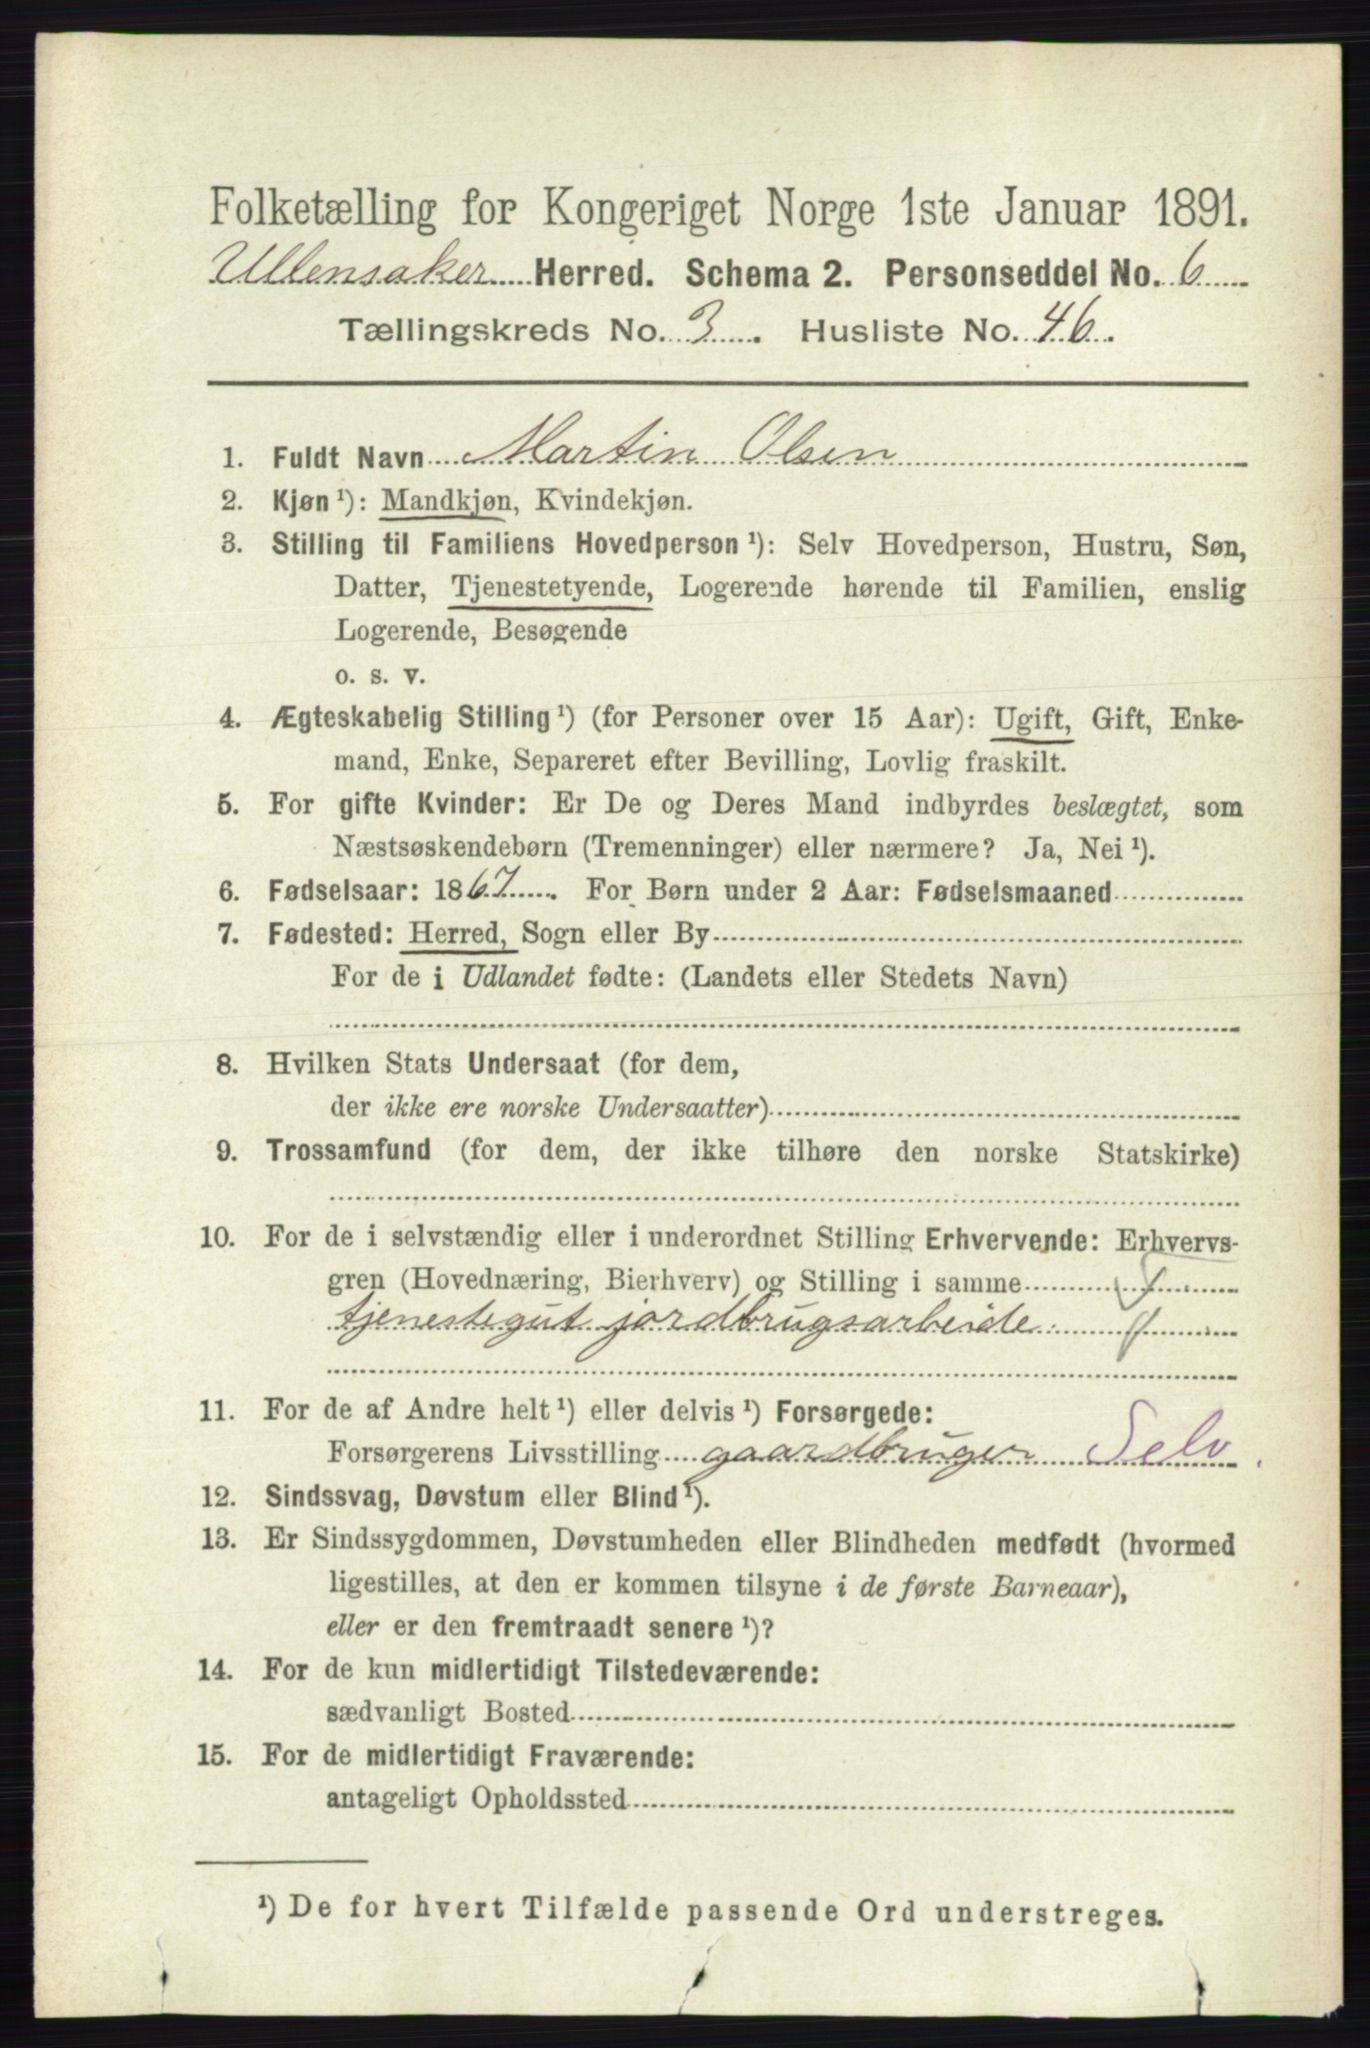 Folketælling for Kongeriget Norge 1ste Januar 1891.
Ullensaker Herred. Schema 2. Personseddel No. 6
Tællingskreds No. 3. Husliste No. 46.
1. Fuldt Navn Martin Olsen
2. Kjøn ¹): Mandkjøn, Kvindekjøn.
3. Stilling til Familiens Hovedperson ¹): Selv Hovedperson, Hustru, Søn,
Datter, Tjenestetyende, Logerende hørende til Familien, enslig
Logerende, Besøgende
o. s. v.
4. Ægteskabelig Stilling ¹) (for Personer over 15 Aar): Ugift, Gift, Enke-
mand, Enke, Separeret efter Bevilling, Lovlig fraskilt.
5. For gifte Kvinder: Er De og Deres Mand indbyrdes beslægtet, som
Næstsøskendebørn (Tremenninger) eller nærmere? Ja, Nei ¹).
6. Fødselsaar: 1867. For Børn under 2 Aar: Fødselsmaaned
7. Fødested: Herred, Sogn eller By
For de i Udlandet fødte: (Landets eller Stedets Navn)
8. Hvilken Stats Undersaat (for dem,
der ikke ere norske Undersaatter)
9. Trossamfund (for dem, der ikke tilhøre den norske Statskirke)
10. For de i selvstændig eller i underordnet Stilling Erhvervende: Erhvervs-
gren (Hovednæring, Bierhverv) og Stilling i samme
tjenestegut jordbrugsarbeide
11. For de af Andre helt ¹) eller delvis ¹) Forsørgede:
Forsørgerens Livsstilling gaardbruger Selv
12. Sindssvag, Døvstum eller Blind ¹).
13. Er Sindssygdommen, Døvstumheden eller Blindheden medfødt (hvormed
ligestilles, at den er kommen tilsyne i de første Barneaar),
eller er den fremtraadt senere ¹)?
14. For de kun midlertidigt Tilstedeværende:
sædvanligt Bosted
15. For de midlertidigt Fraværende:
antageligt Opholdssted
¹) De for hvert Tilfælde passende Ord understreges.